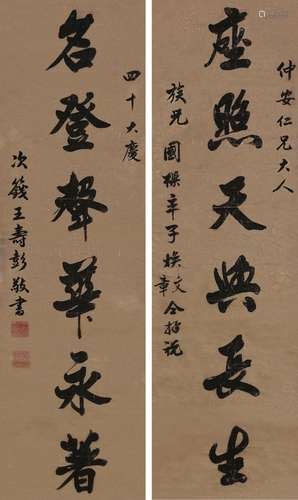 仲安仁兄大人
座照天典長生
族兄國樑辛子
四十大慶
名登聲華永著
次籛王壽彭敬書